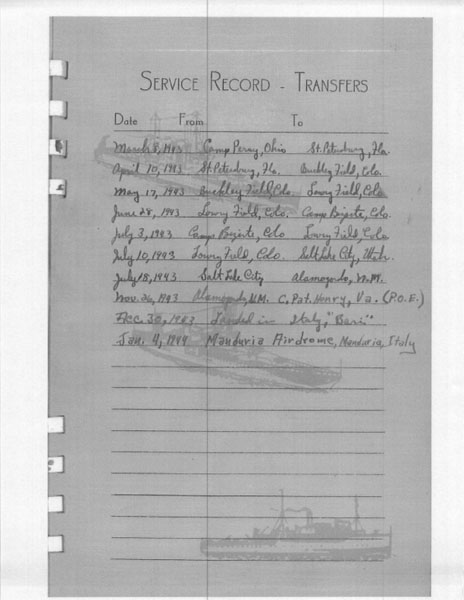 SERVICE RECORD - TRANSFERS
Date From To
March 8, 1943 Camp Perry, Ohio St. Petersburg, Fla.
April 10, 1943 St. Petersburg, Fla. Buckley Field, Colo.
May 17, 1943 Buckley Field, Colo. Lowry Field, Colo.
June 28, 1943 Lowry Field, Colo. Camp Colo.
July 3, 1943 Camp Colo Lowry Field, Colo
July 10, 1943 Lowry Field, Colo. Salt Lake City, Utah.
July 18, 1943 Salt Lake City Alamogordo, N.M.
Nov. 26, 1943 N.M. C. Pat. Henry, Va. (P.O.E.)
Dec. 30, 1943 Landed in Italy, "Bari"
Jan. 4, 1944 Manduria Airdrome, Manduria, Italy